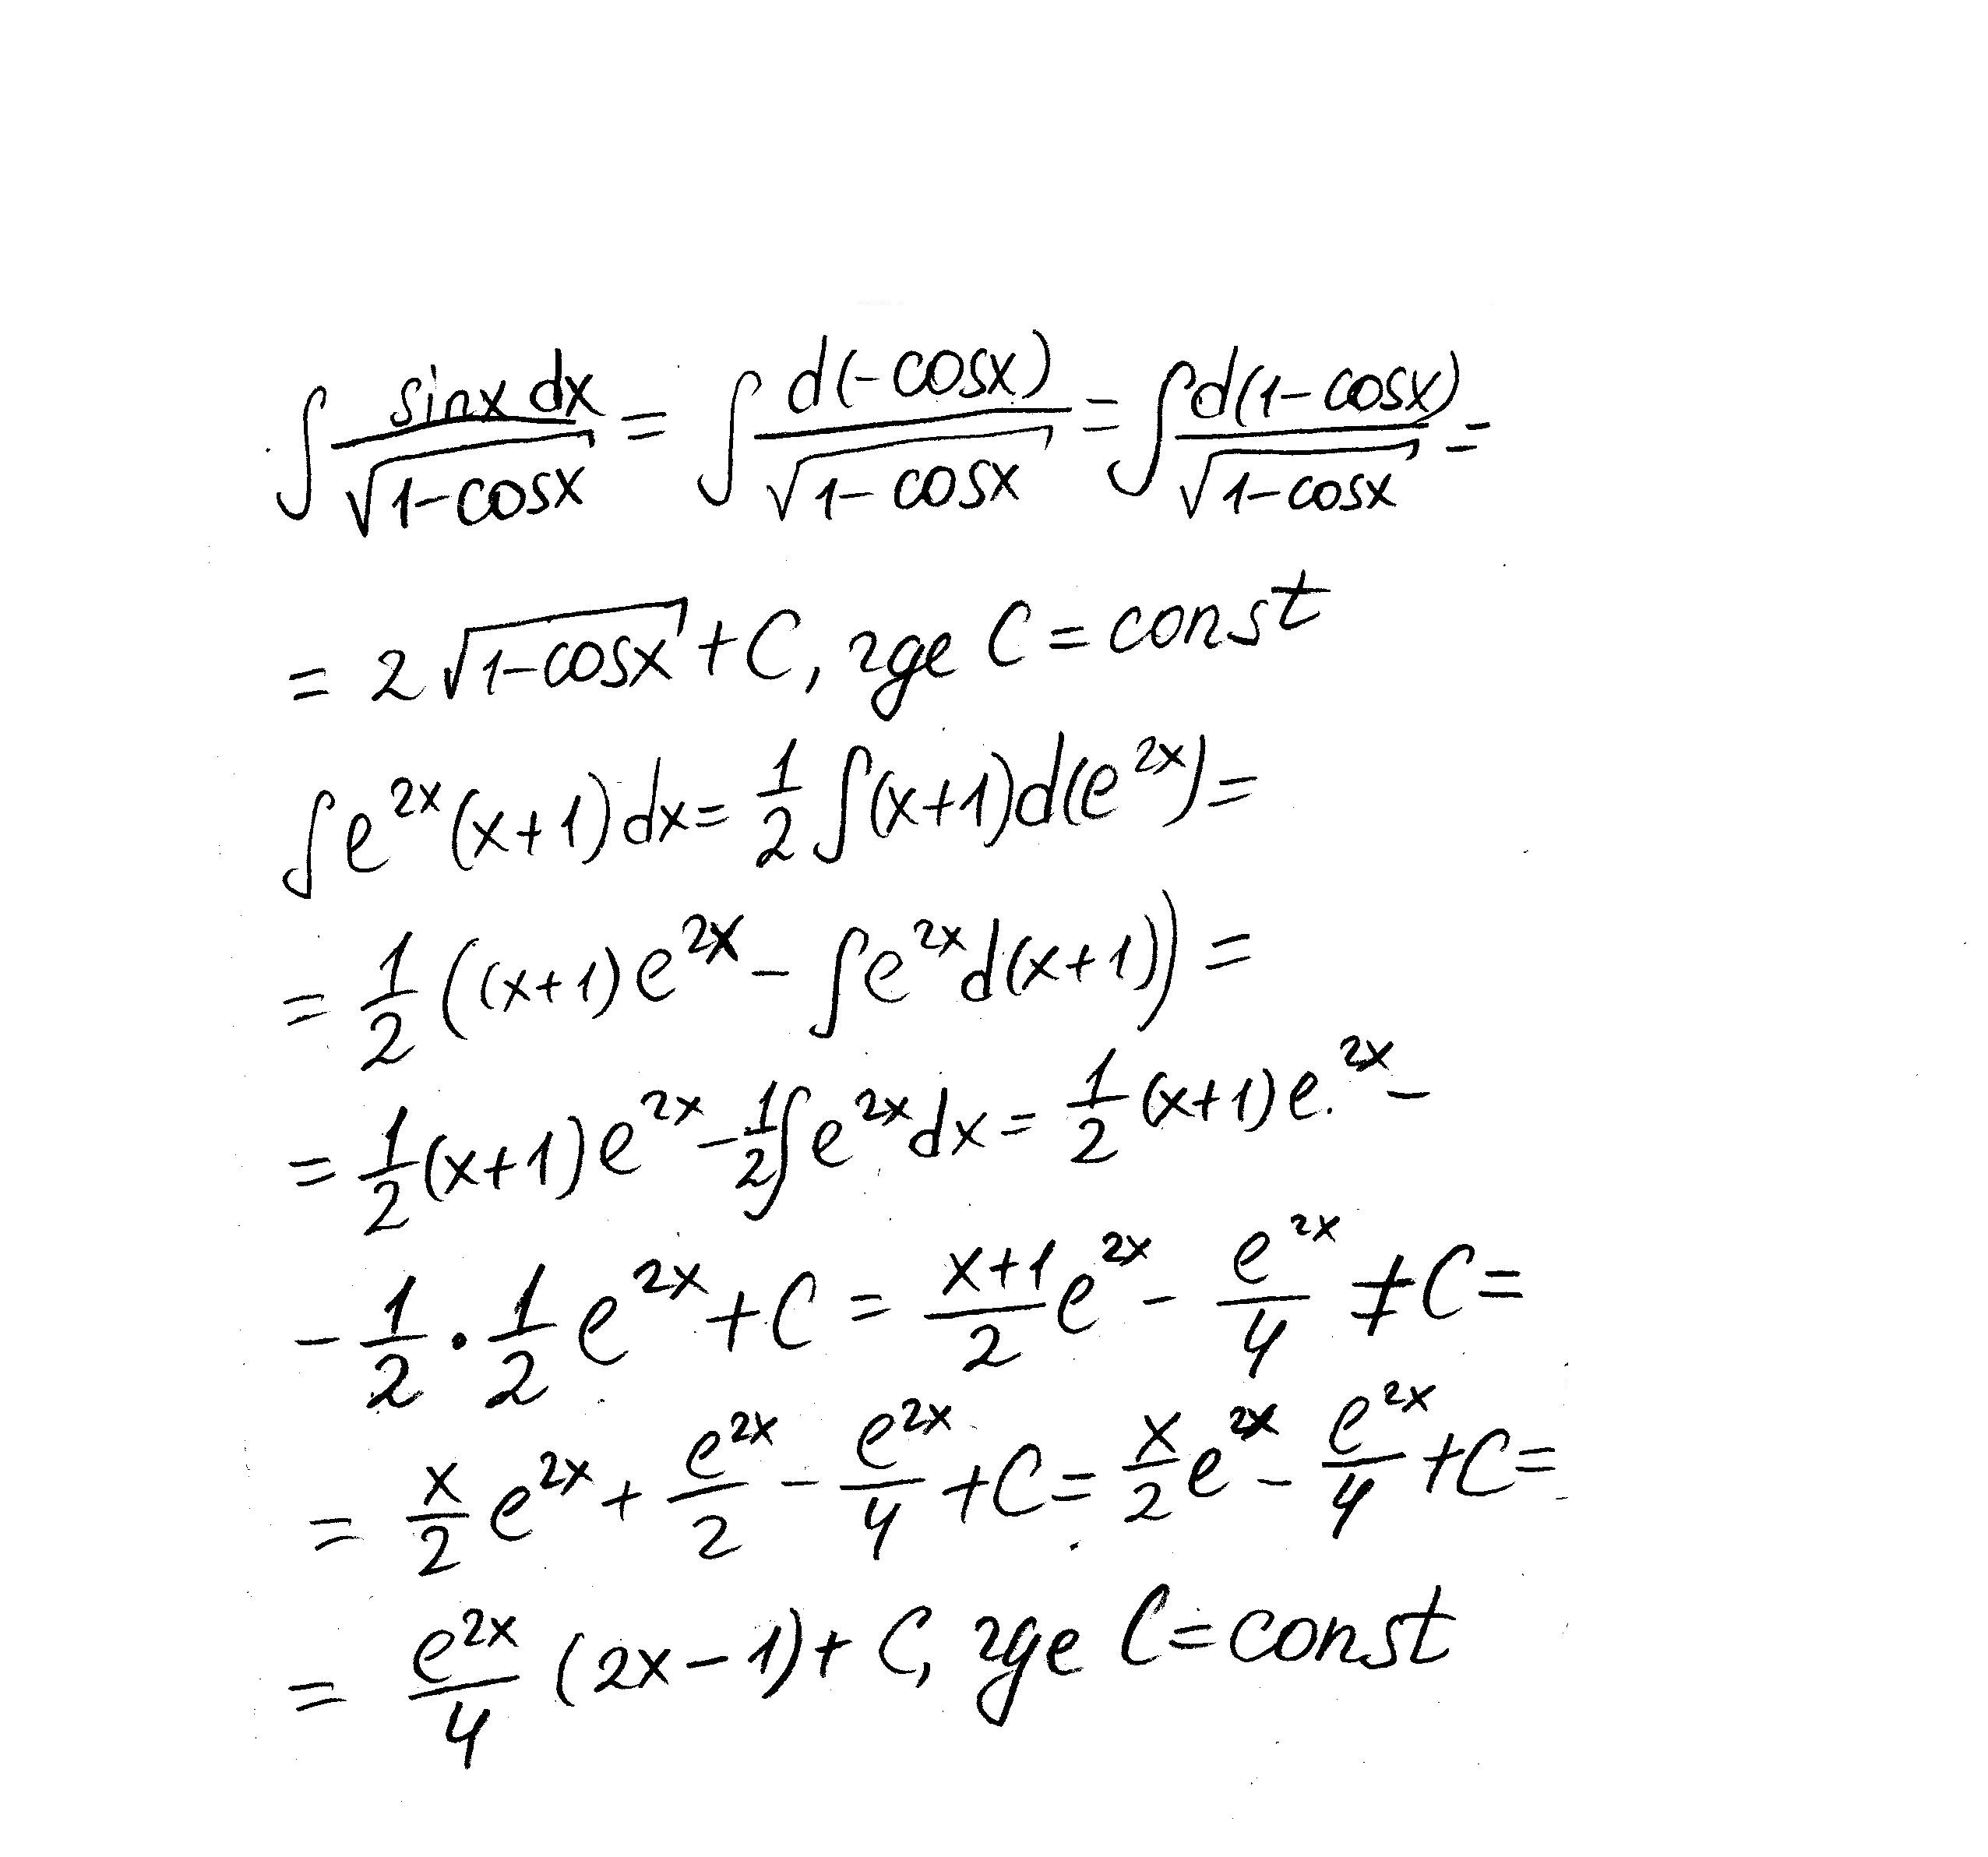 ∫ sinx dx / √(1-cosx) = ∫ d(-cosx) / √(1-cosx) = ∫ d(1-cosx) / √(1-cosx) =
= 2√(1-cosx) + C, где C = const
∫e^(2x)(x+1)dx = 1/2 ∫(x+1)d(e^(2x)) =
= 1/2 ((x+1)e^(2x) - ∫e^(2x)d(x+1)) =
= 1/2(x+1)e^(2x) - 1/2∫e^(2x)dx = 1/2(x+1)e^(2x) -
- 1/2 · 1/2 e^(2x) + C = (x+1)/2 e^(2x) - e^(2x)/4 + C =
= x/2 e^(2x) + e^(2x)/2 - e^(2x)/4 + C = x/2 e^(2x) - e^(2x)/4 + C =
= e^(2x)/4 (2x-1) + C, где C = const